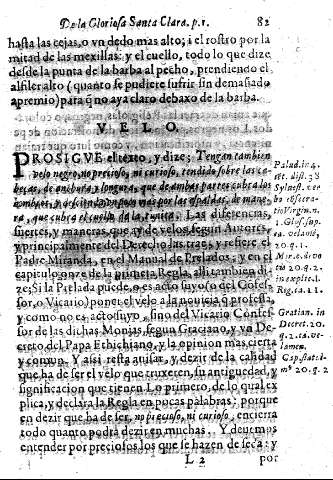 De la Gloriosa Santa Clara. p. 1. 82
hasta las cejas, o vn dedo mas alto; i el rostro por la
mitad de las mexillas: y el cuello, todo lo que dize
desde la punta de la barba al pecho, prendiendo el
alfiler alto (quanto se pudiere sufrir sin demasiado
apremio) para q̃ no aya claro debaxo de la barba.
VELO.
PROSIGVE el texto, y dize; Tengan tambien
velo negro, no precioso, ni curioso, tendido sobre las ca-
beças, de anchura, y longura, que de ambas partes cubra los
ombros, y descienda un poco mas por las espaldas, de mane-
ra, que cubra el cuello de la tunica. Las diferencias,
suertes, y maneras, que ay de velos segun Autores,
y principalmente del Derecho las trae, y refiere el
Padre Miranda, en el Manual de Prelados: y en el
capitulo onze de la primera Regla, alli tambien di-
ze; Si la Prelada puede, o es acto suyo (o del Cōfes-
sor, o Vicario) poner el velo a la nouicia q̃ professa,
y como no es acto suyo, sino del Vicario Confes-
sor de las dichas Monjas, segun Graciano, y vn De-
creto del Papa Ethichiano, y la opinion mas cierta
y comun. Y assi resta auisar, y dezir de la calidad
que ha de ser el velo que truxeren, su antiguedad, y
significacion que tienen Lo primero, de lo qual ex
plica, y declara la Regla en pocas palabras: porque
en dezir que ha de ser, no precioso, ni curioso, encierra
todo quanto podrà dezir en muchas. Y deuemos
entender por preciosos los que se hazen de seda: y
L 2 por
Palud. in 4.
sect. dist. 38
Syluest. ver
bo
Virgin. n.
1. Glos. sup.
ca. velamẽ,
20. q. 1.
Mir. c. de vo
tio 20. q. 2.
in explic. 1.
Reg. ca. 11.
Gratian. in
Decret. 20.
q. 2. ca. ve-
lamen.
Cap. statui-
m⁹ 20. q. 2